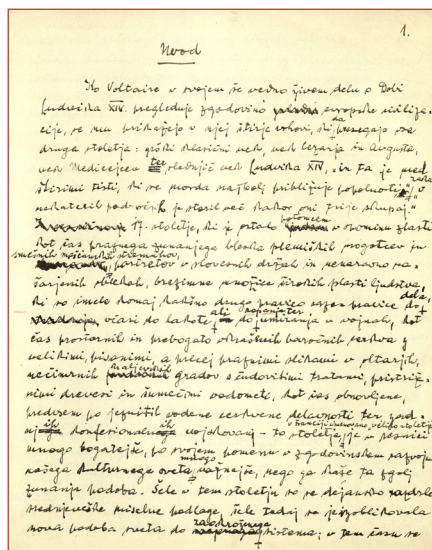 1.
Uvod
Ko Voltaire v svojem še vedno živem delu o Dobi
Ludvika XIV. pregleduje zgodovino evropske civiliza-
cije, se mu prikažejo v njej štirje vrhovi, ki da presegajo vsa
druga stoletja: grški klasični vek, vek Cezarja in Avgusta,
vek Medicejcev ter slednjič vek Ludvika XIV., "in ta je med
štirimi tisti, ki se morda najbolj približuje popolnosti", "v
nekaterih področjih je storil več kakor oni trije skupaj."
17. stoletje, ki je ostalo potomcem v spominu zlasti
kot čas praznega zunanjega bleska plemiških pogostev in
smešnih meščanskih posnemalcev, portretov v slovesnih držah in
šarjenih oblekah, brezimne množice širokih plasti ljudstva,
ki so imele komaj kakšno drugo pravico razen pravice do dela,
včasi do lakote, ali ropanja ter do umiranja v vojnah, kot
čas prostornih in prebogato okrašenih baročnih cerkva z
velikimi, pisanimi, a precej praznimi slikami v oltarjih,
nečimrnih kraljevskih gradov s čudovitimi tratami, pristriže-
nimi drevesi in šumečimi vodometi, kot čas obnovljene,
predvsem po jezuitih vodene cerkvene delavnosti ter zad-
njih konfesionalnih vojskovanj – to stoletje, je v resnici
mnogo bogatejše, po svojem pomenu v zgodovinskem razvoju
našega kulturnega sveta mnogo važnejše, nego ga kaže ta zgolj
zunanja podoba. Šele v tem stoletju so se dejansko razdrle
srednjeveške miselne podlage, šele tedaj se je izoblikovala
nova podoba sveta do zaokroženega sistema; v tem času se